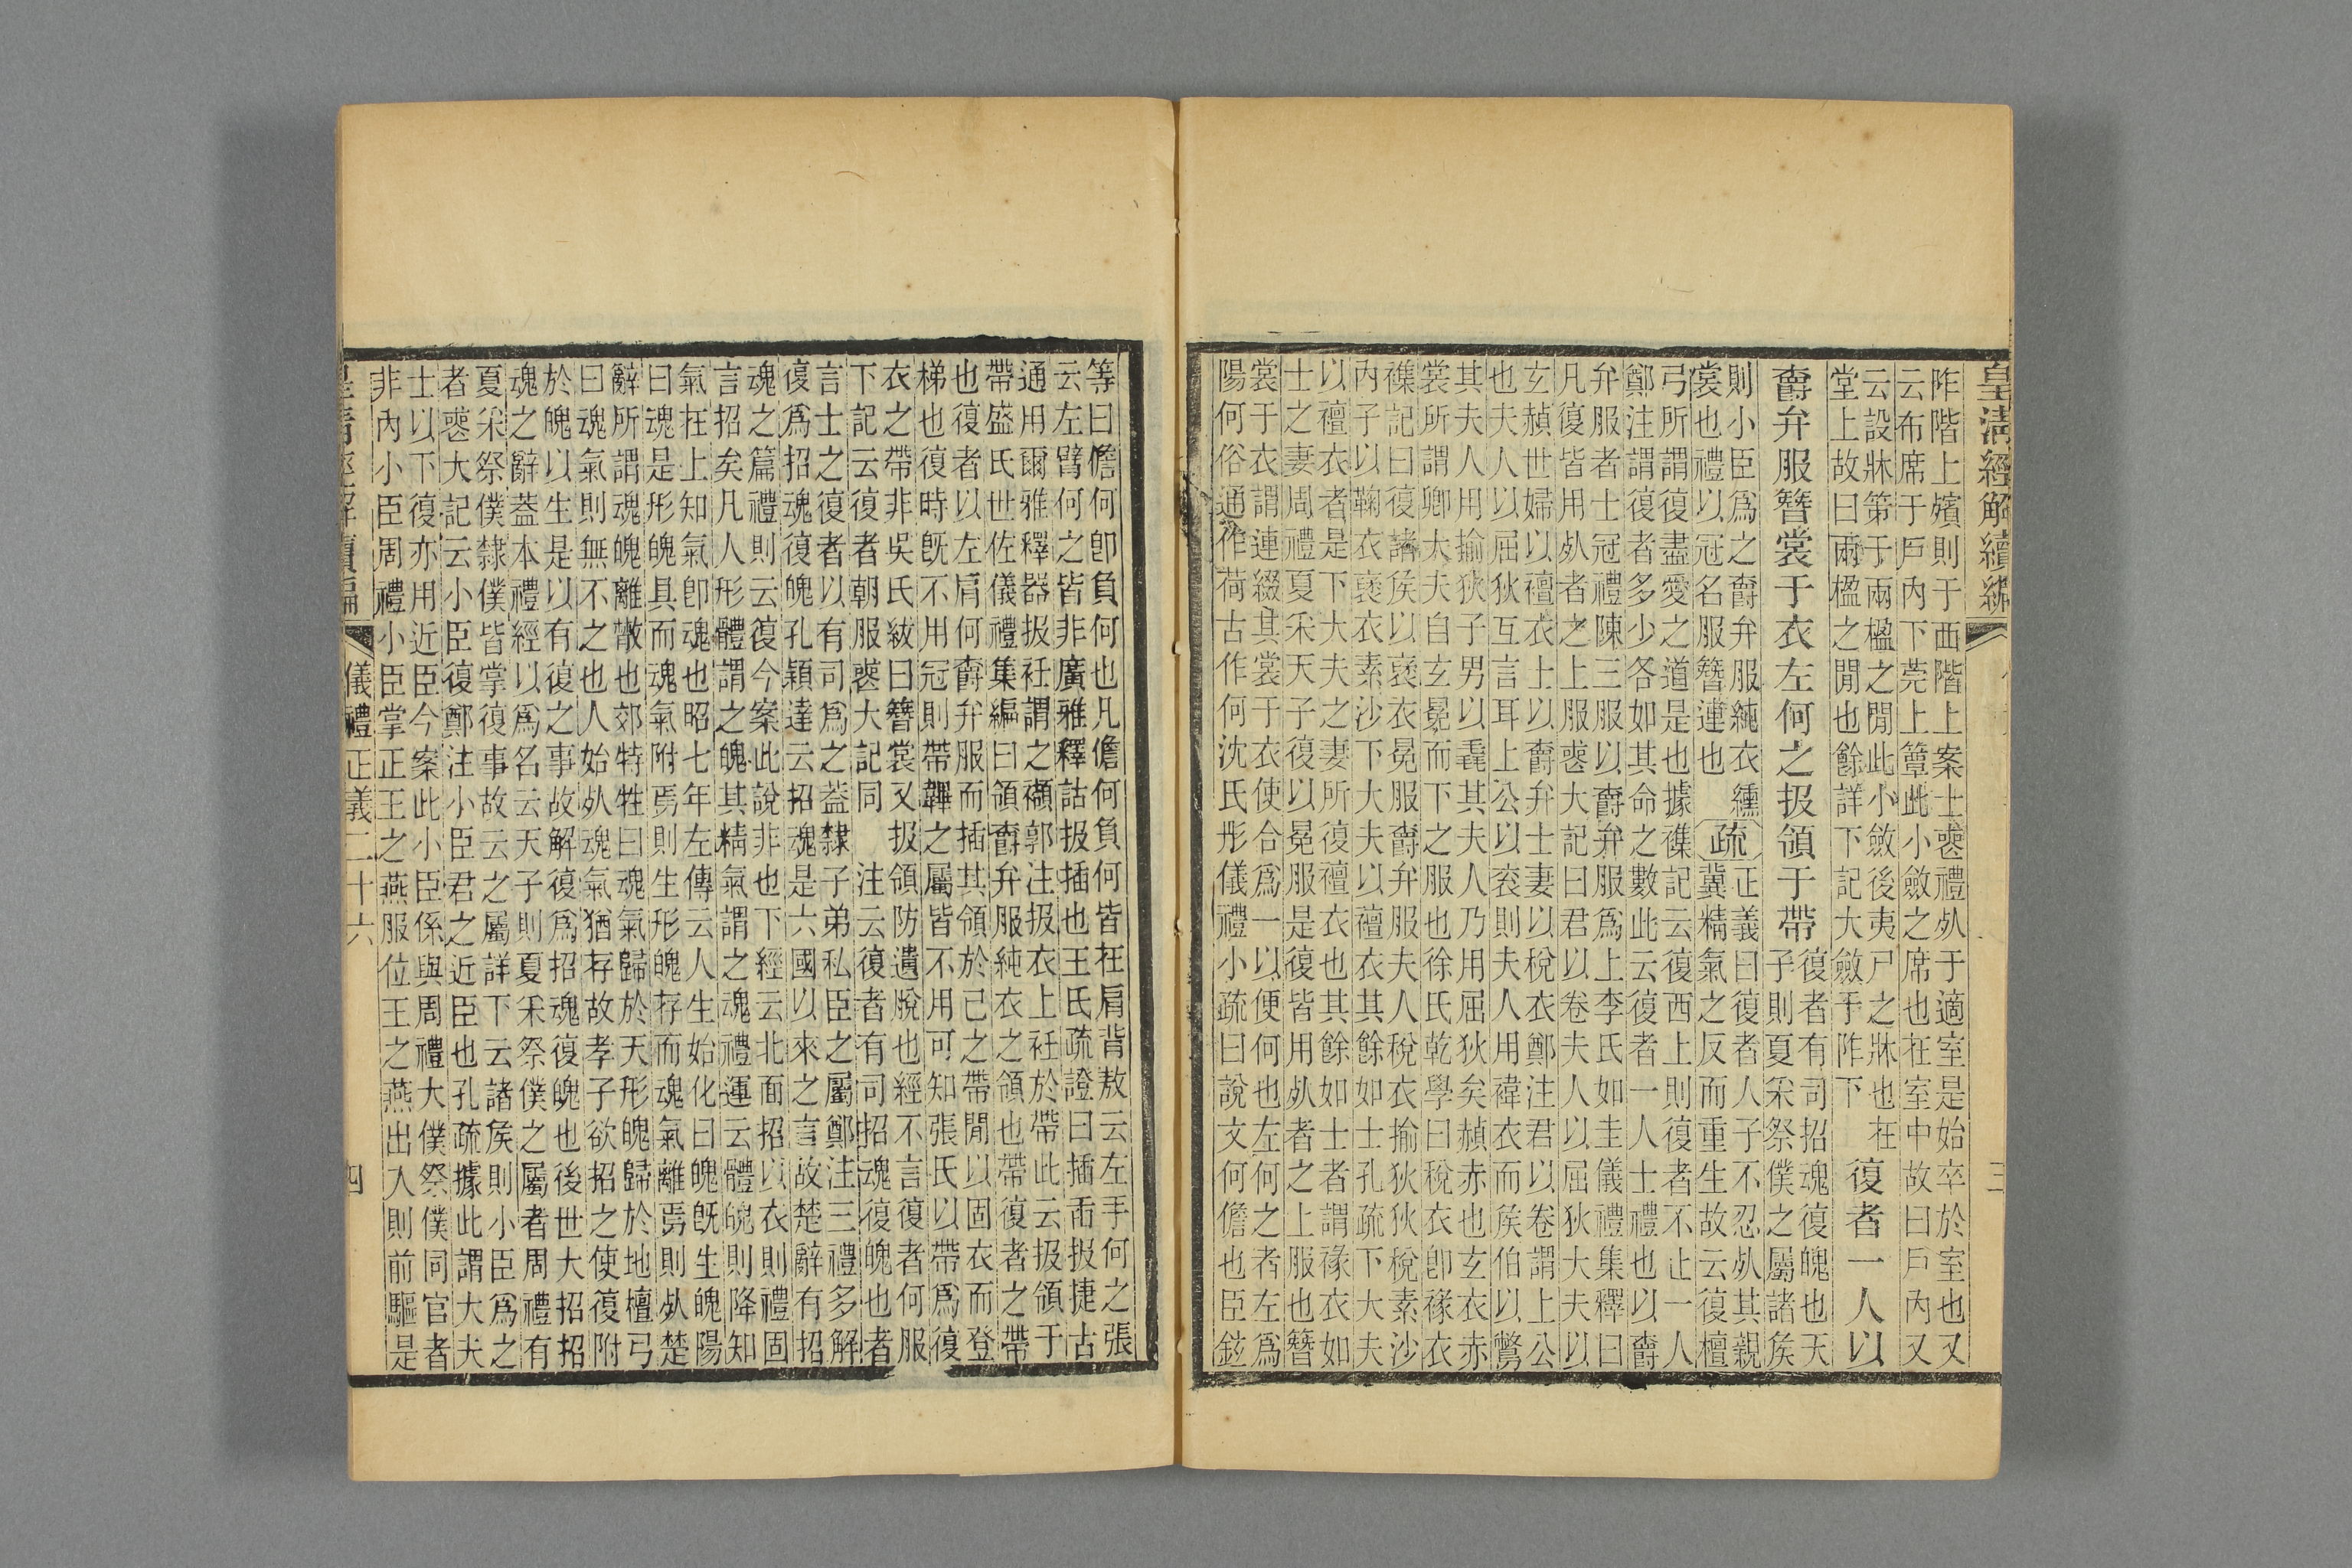 皇清經解續編
三
阼階上殯則于西階上案士喪禮死于適室是始卒於室也又
云布席于戶內下莞上簟此小斂之席也在室中故曰戶內又
云設牀第于兩楹之閒此小斂後夷尸之牀也在
堂上故曰兩楹之閒也餘詳下記大斂于阼下
復者一人以
爵弁服簪裳于衣左何之扱領于帶
復者有司招魂復魄也天
子則夏采祭僕之屬諸侯
則小臣爲之爵弁服純衣纁
裳也禮以冠名服簪連也
疏
正義曰復者人子不忍死其親
冀精氣之反而重生故云復檀
弓所謂復盡愛之道是也據襍記云復西上則復者不止一人
鄭注謂復者多少各如其命之數此云復者一人士禮也以爵
弁服者士冠禮陳三服以爵弁服爲上李氏如圭儀禮集釋曰
凡復皆用死者之上服喪大記曰君以卷夫人以屈狄大夫以
玄赬世婦以襢衣士以爵弁士妻以稅衣鄭注君以卷謂上公
也夫人以屈狄互言耳上公以衮則夫人用褘衣而侯伯以鷩
其夫人用揄狄子男以毳其夫人乃用屈狄矣赬赤也玄衣赤
裳所謂卿大夫自玄冕而下之服也徐氏乾學曰稅衣卽褖衣
襍記曰復諸侯以襃衣冕服爵弁服夫人稅衣揄狄狄稅素沙
內子以鞠衣襃衣素沙下大夫以襢衣其餘如士孔疏下大夫
以襢衣者是下大夫之妻所復襢衣也其餘如士者謂褖衣如
士之妻周禮夏采天子復以冕服是復皆用死者之上服也簪
裳于衣謂連綴其裳于衣使合爲一以便何也左何之者左爲
陽何俗通作荷古作何沈氏彤儀禮小疏曰說文何儋也臣鉉
等曰儋何卽負何也凡儋何負何皆在肩背敖云左手何之張
云左臂何之皆非廣雅釋詁扱插也王氏疏證曰插臿扱捷古
通用爾雅釋器扱衽謂之襭郭注扱衣上衽於帶此云扱領于
帶盛氏世佐儀禮集編曰領爵弁服純衣之領也帶復者之帶
也復者以左肩何爵弁服而插其領於己之帶閒以固衣而登
梯也復時旣不用冠則帶韠之屬皆不用可知張氏以帶爲復
衣之帶非吳氏紱曰簪裳又扱領防遺脫也經不言復者何服
下記云復者朝服喪大記同　注云復者有司招魂復魄也者
言士之復者以有司爲之蓋隸子弟私臣之屬鄭注三禮多解
復爲招魂復魄孔穎達云招魂是六國以來之言故楚辭有招
魂之篇禮則云復今案此說非也下經云北面招以衣則禮固
言招矣凡人形體謂之魄其精氣謂之魂禮運云體魄則降知
氣在上知氣卽魂也昭七年左傳云人生始化曰魄旣生魄陽
曰魂是形魄具而魂氣附焉則生形魄存而魂氣離焉則死楚
辭所謂魂魄離散也郊特牲曰魂氣歸於天形魄歸於地檀弓
曰魂氣則無不之也人始死魂氣猶存故孝子欲招之使復附
於魄以生是以有復之事故解復爲招魂復魄也後世大招招
魂之辭蓋本禮經以爲名云天子則夏采祭僕之屬者周禮有
夏采祭僕隸僕皆掌復事故云之屬詳下云諸侯則小臣爲之
者喪大記云小臣復鄭注小臣君之近臣也孔疏據此謂大夫
士以下復亦用近臣今案此小臣係與周禮大僕祭僕同官者
非內小臣周禮小臣掌正王之燕服位王之燕出入則前驅是
皇清經解續編
儀禮正義二十六
四